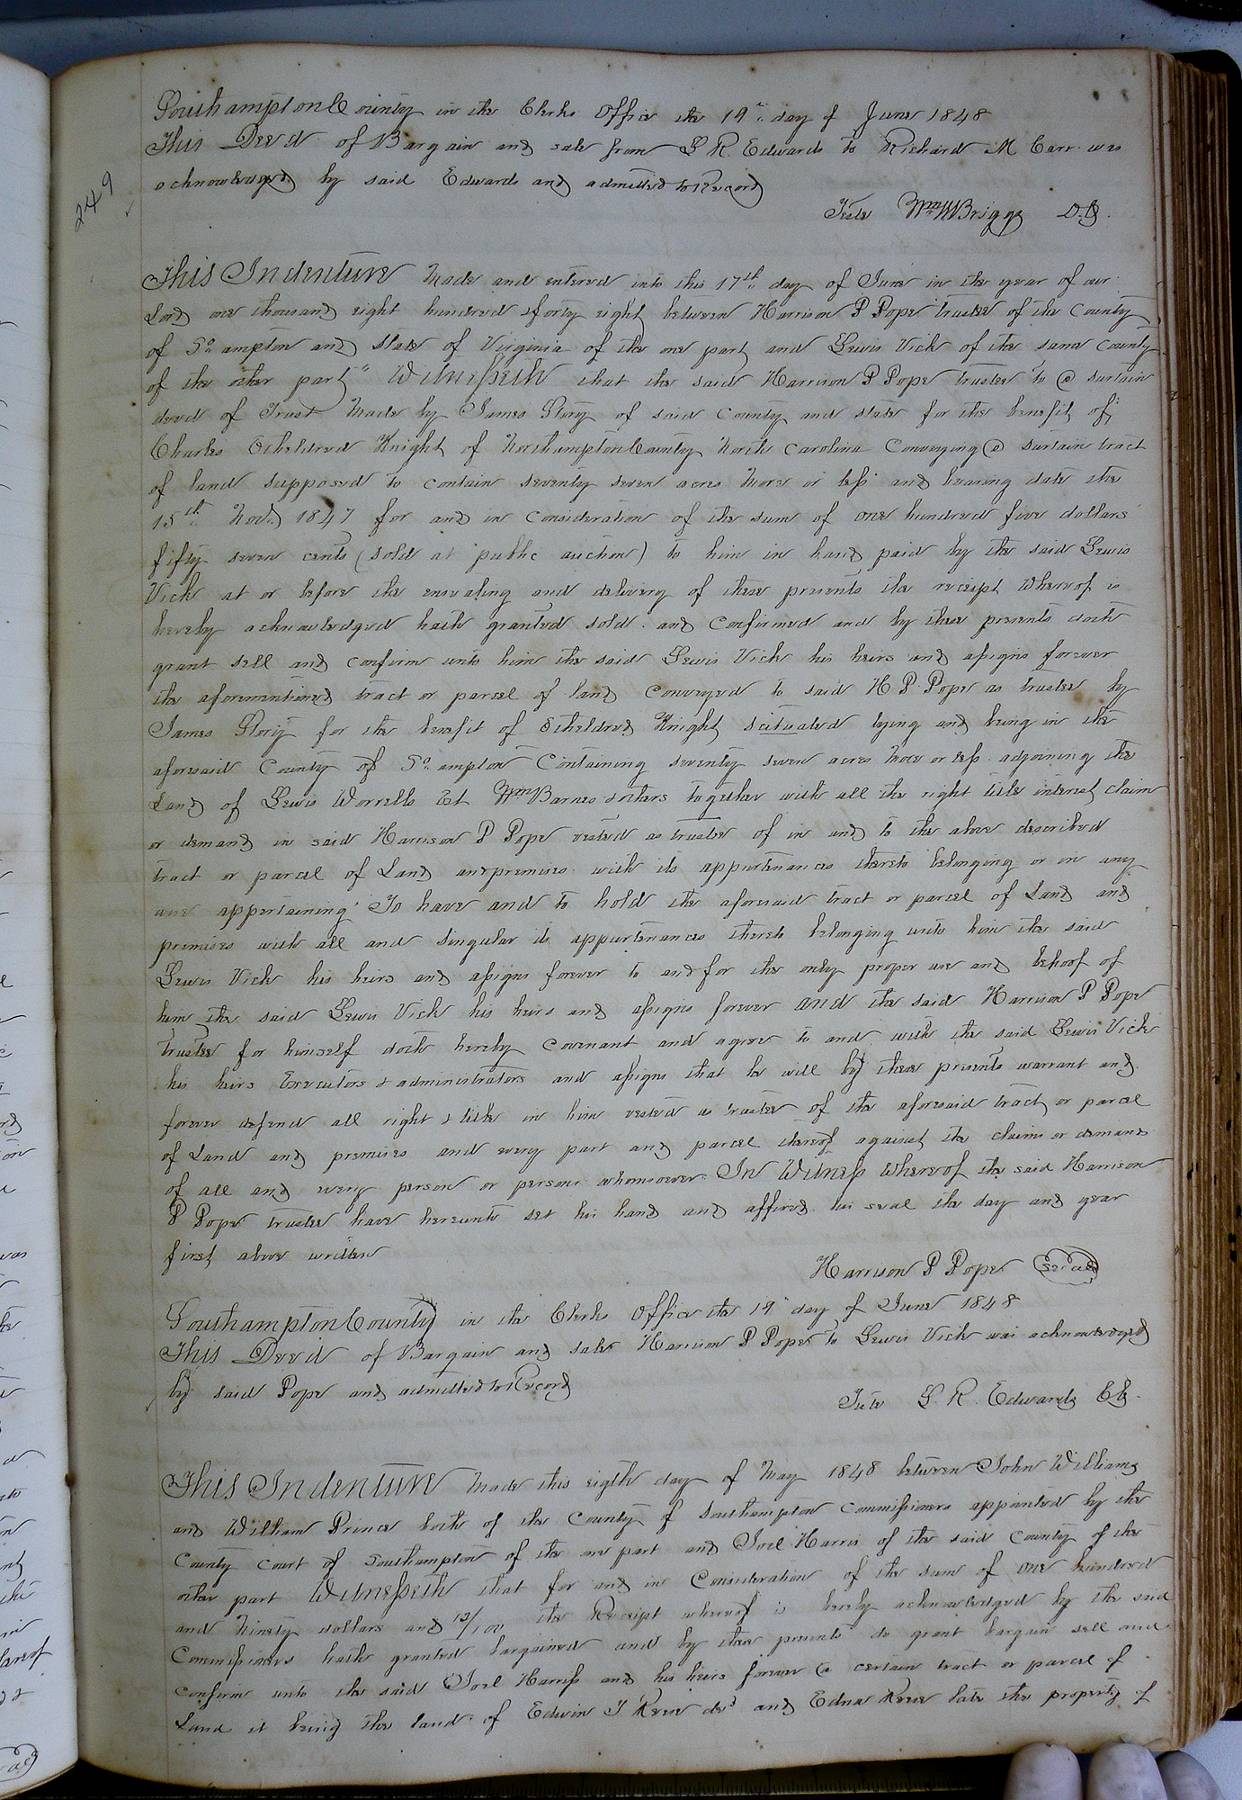 Southampton County in the Clerks Office the 19th day of June 1848
This Deed of Bargain and sale from L R. Edwards to Richard M Carr was
acknowledged by said Edwards and admitted to Record
249
Teste Wm W Briggs D.C.
This Indenture Made and entered into this 17th day of June in the year of our
Lord one thousand eight hundred & forty eight between Harrison P Pope trustee of the County
of So. ampton and State of Virginia of the one part and Lewis Vick of the same County
of the other part" Witnesseth that the said Harrison P Pope trustee to @ surtain
deed of Trust Made by James Story of said County and state for the benefit of
Charles Etheldred Knight of Northampton County North Carolina Conveying @ surtain tract
of land supposed to contain seventy seven acres More or less and bearing date the
15th Novr. 1847 for and in Consideration of the sum of one hundred five dollars
fifty seven cents (sold at public auction) to him in hand paid by the said Lewis
Vick at or before the ensealing and delivery of these presents the receipt Whereof is
hereby acknowledged hath granted sold and Confirmed and by these presents doth
grant sell and confirm unto him the said Lewis Vick his heirs and assigns forever
the aforementioned tract or parcel of land Conveyed to said H P. Pope as trustee by
James Story for the benefit of Etheldred Knight scituated lying and being in the
aforesaid County of So. ampton Containing seventy seven acres More or less adjoining the
Land of Lewis Worrells Est Wm Barnes & others together with all the right title interest claim
or demand in said Harrison P Pope vested as trustee of in and to the above described
tract or parcel of Land and premises with its appurtenances thereto belonging or in any
wise appertaining To have and to hold the aforesaid tract or parcel of Land and
premises with all and Singular its appurtenances thereto belonging unto him the said
Lewis Vick his heirs and assigns forever to and for the only proper use and behoof of
him the said Lewis Vick his heirs and assigns forever and the said Harrison P Pope
trustee for himself doth hereby Covenant and agree to and with the said Lewis Vick
his heirs Executors & administrators and assigns that he will by these presents warrant and
forever defend all right & title in him vested as trustee of the aforesaid tract or parcel
of Land and premises and every part and parcel thereof against the claims or demand
of all and every person or persons whomsoever In Witness Whereof the said Harrison
P Pope trustee have hereunto set his hand and affixed his seal the day and year
first above written
Harrison P Pope Seal
Southampton County in the Clerks Office the 19th day of June 1848
This Deed of Bargain and sale Harrison P Pope to Lewis Vick was acknowledged
by said Pope and admitted to Record
Teste L. R. Edwards Clk.
This Indenture Made this eigth day of May 1848 between John Williams
and William Prince both of the County of Southampton Commissioners appointed by the
County Court of Southampton of the one part and Joel Harris of the said County of the
other part Witnesseth that for and in Consideration of the sum of one hundred
and Ninety dollars and 12/100 the Receipt whereof is hereby acknowledged by the said
Commissioners hath granted bargained and by these presents do grant bargain sell and
confirm unto the said Joel Harriss and his heirs forever @ certain tract or parcel of
Land it being the land of Edwin T Reese decd and Edna Reese late the property of